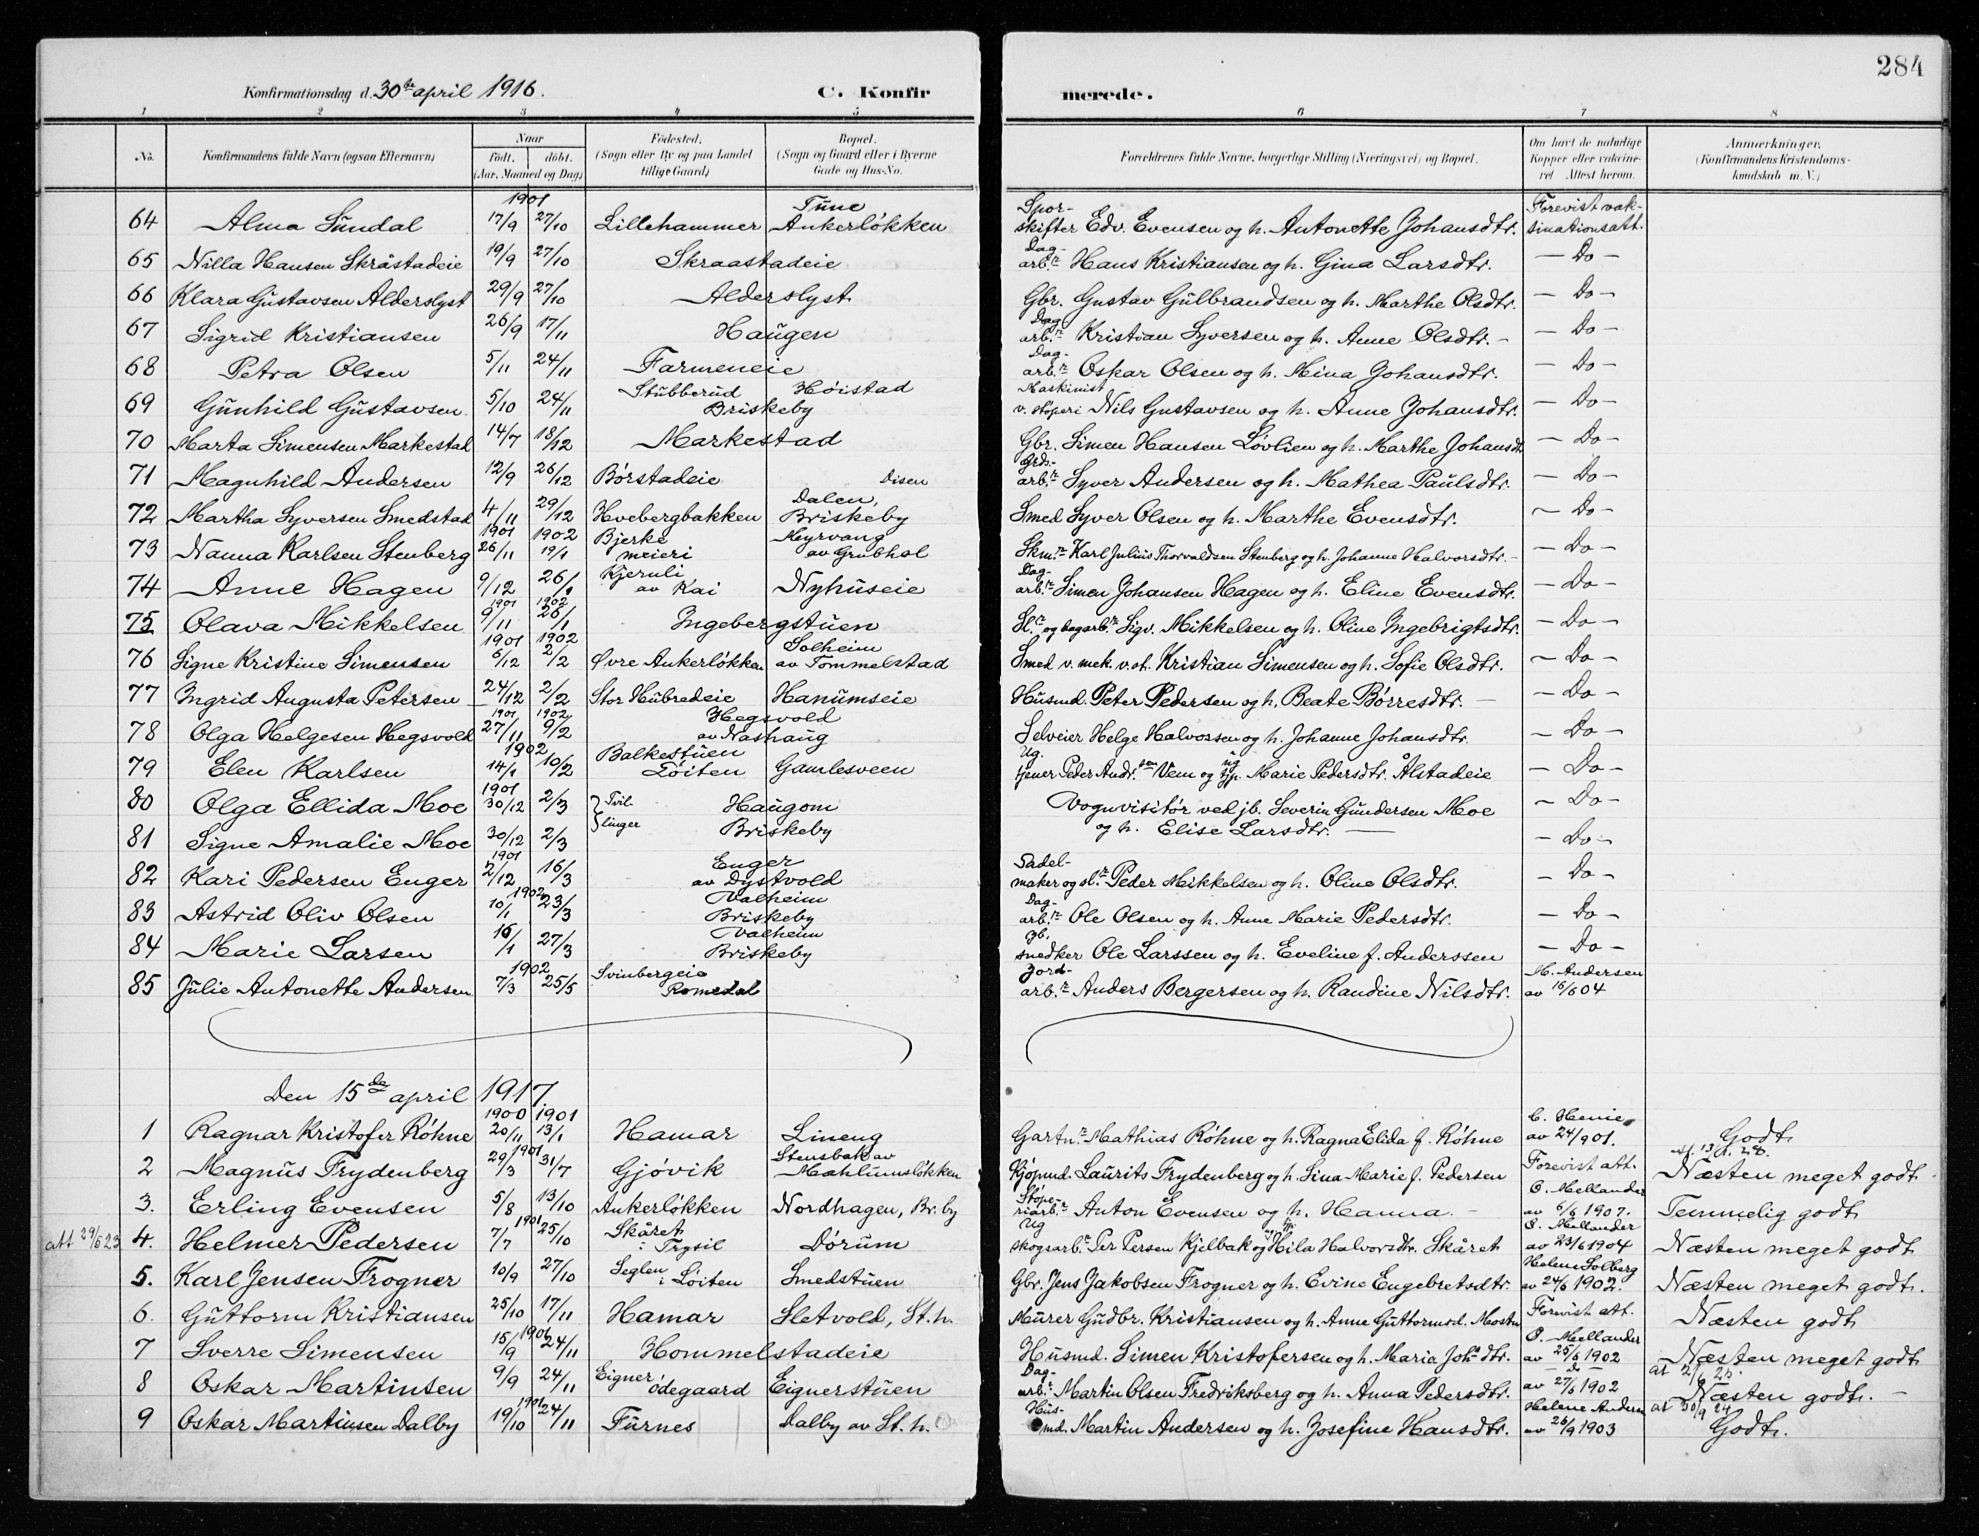 284
Konfirmationsdag d. 30te april 1916. C. Konfirmerede.
1 2 3 4 5 6 7 8
No. Konfirmandens fulde Navn (ogsaa Efternavn) Naar født. døbt. (Aar, Maaned og Dag) Fødested. (Sogn eller By og paa Landet tillige Gaard) Bopæl. (Sogn og Gaard eller i Byerne Gade og Hus-No. Forældrenes fulde Navne, borgerlige Stilling (Næringsvei) og Bopæl. Om havt de naturlige Kopper eller vakcineret. Attest herom. Anmærkninger. (Konfirmandens Kristendomskundskab m. V.)
1901
64 Alma Sundal 17/9 27/10 Lillehammer Tune Ankerløkken Sporskifter Edv. Evensen og h. Antonette Johansdtr. Forevist vaksinationsatt.
65 Nilla Hansen Skråstadeie 19/9 27/10 Skraastadeie Dagarb.r Hans Kristiansen og h. Gina Larsdtr. — Do —
66 Klara Gustavsen Alderslyst 29/9 27/10 Alderslyst Gbr. Gustav Gulbrandsen og h. Marthe Olsdtr. — Do —
67 Sigrid Kristiansen 26/9 17/11 Haugen Dagarb.r Kristian Syversen og h. Anne Olsdtr. — Do —
68 Petra Olsen 5/11 24/11 Farmeneie Dagarb.r Oskar Olsen og h. Mina Johansdtr. — Do —
69 Gunhild Gustavsen 5/10 24/11 Stubberud Høistad Briskeby Maskinist v. støperi Nils Gustavsen og h. Anne Johansdtr. — Do —
70 Marta Simensen Markestad 14/7 18/12 Markestad Gbr. Simen Hansen Løvlien og h. Marthe Johansdt — Do —
71 Magnhild Andersen 12/9 26/12 Børstadeie Disen Grds.arb.r Syver Andersen og h. Mathea Paulsdtr. — Do —
72 Martha Syversen Smedstad 4/11 29/12 Hvebergbakken Dalen, Briskeby Smed Syver Olsen og h. Marthe Evensdtr. — Do —
73 Nanna Karlsen Stenberg 1901 26/11 1902 19/1 Bjerke meieri Myrvang av Grubhol Skm.r Karl Julius Thorvaldsen Stenberg og h. Johanne Halvorsdtr. — Do —
74 Anne Hagen 9/12 26/1 Kjernli av Kai Nyhuseie Dagarb.r Simen Johansen Hagen og h. Eline Evensdtr. — Do —
75 Olava Mikkelsen 1901 9/11 1902 26/1 Ingebergstuen Sl.r og dagarb.r Sigv. Mikkelsen og h. Oline Ingebrigtsdtr. — Do —
76 Signe Kristine Simensen 1901 6/12 1902 2/2 Øvre Ankerløkken Solheim av Tommelstad Smed v. mek. v.st. Kristian Simensen og h. Sofie Olsdtr. — Do —
77 Ingrid Augusta Petersen 24/12 2/2 Stor Hubredeie Hanumseie Husmd. Peter Pedersen og h. Beate Børresdtr. — Do —
78 Olga Helgesen Hegsvold 1901 27/11 1902 9/2 Hegsvold av Nashaug Selveier Helge Halvossen og h. Johanne Johansdtr. — Do —
79 Elen Karlsen 1902 14/1 10/2 Balkestuen Løiten Gamlesveen Ug. tjener Peder Andr.sen Vem og ug tjp. Marie Pedersdtr. Ålstadeie — Do —
80 Olga Ellida Moe 1901 30/12 2/3 Tvillinger Haugom Vognvisitør ved jb. Severin Gundersen Moe — Do —
81 Signe Amalie Moe 30/12 2/3 Briskeby og h. Elise Larsdtr. — Do —
82 Kari Pedersen Enger 1901 2/12 16/3 Enger av Dystvold Sadelmaker og sl.r Peder Mikkelsen og h. Oline Olsdtr. — Do —
83 Astrid Oliv Olsen 1902 10/1 23/3 Valheim Briskeby Dagarb.r Ole Olsen og h. Anne Marie Pedersdtr. — Do —
84 Marie Larsen 16/1 27/3 Valheim Briskeby gb. snedker Ole Larssen og h. Eveline f. Anderssen — Do —
85 Julie Antonette Andersen 1902 7/3 25/5 Svinbergeie Romedal Jordarb.r Anders Bergersen og h. Randine Nilsdtr. M. Andersen av 16/6 04
Den 15da april 1917.
1 Ragnar Kristofer Røhne 1900 20/11 1901 13/1 Hamar Lineng Gartn.r Mathias Røhne og h. Ragna Elida f. Røhne C. Henie av 24/9 01. Godt.
2 Magnus Frydenberg 29/3 1901 31/7 Gjøvik Stensbak av Mæhlumsløkken Kjøpmd. Laurits Frydenberg og h. Sina Marie f. Pedersen Forevist att. Næsten meget godt
3. Erling Evensen 5/8 13/10 Ankerløkken Nordhagen, Br.by Støperiarb.r Anton Evensen og h. Hanna. O. Mellander av 6/6 1907. Temmelig godt
att 29/6 23 4. Helmer Pedersen 7/7 1901 25/10 Skåret i Trysil Dørum Ug skogsarb.r Per Persen Kjelbak og Hila Halvorsdtr. Skåret O. Mellander av 23/6 1904 Næsten meget godt
5. Karl Jensen Frogner 10/9 27/10 Seglen i Løiten Smedstuen Gbr. Jens Jakobsen Frogner og h. Evine Engebretsdtr Helene Solberg av 24/6 1902. Næsten meget godt.
6. Guttorm Kristiansen 25/10 17/11 Hamar Sletvold, St.h. Murer Gudbr. Kristiansen og h. Anne Guttormsd. Mostu Forevist att. Næsten godt
7 Sverre Simensen 15/9 1901 24/11 Hommelstadeie Husmd. Simen Kristofersen og h. Maria Joh.s dtr. O. Mellander av 25/6 1902 Næsten meget godt
8 Oskar Martinsen 9/9 24/11 Eigner ødegaard Eignerstuen Dagarb.r Martin Olsen Fredriksberg og h. Anna Pedersdtr. — Do — av 27/6 1902 at 2/6 25. Næsten godt. —
9 Oskar Martinsen Dalby 19/10 1901 24/11 Furnes Dalby av St.h. Husmd. Martin Andersen og h. Josefine Hansdtr. Helene Andersen av 26/9 1903 at 30/9 24 Godt.